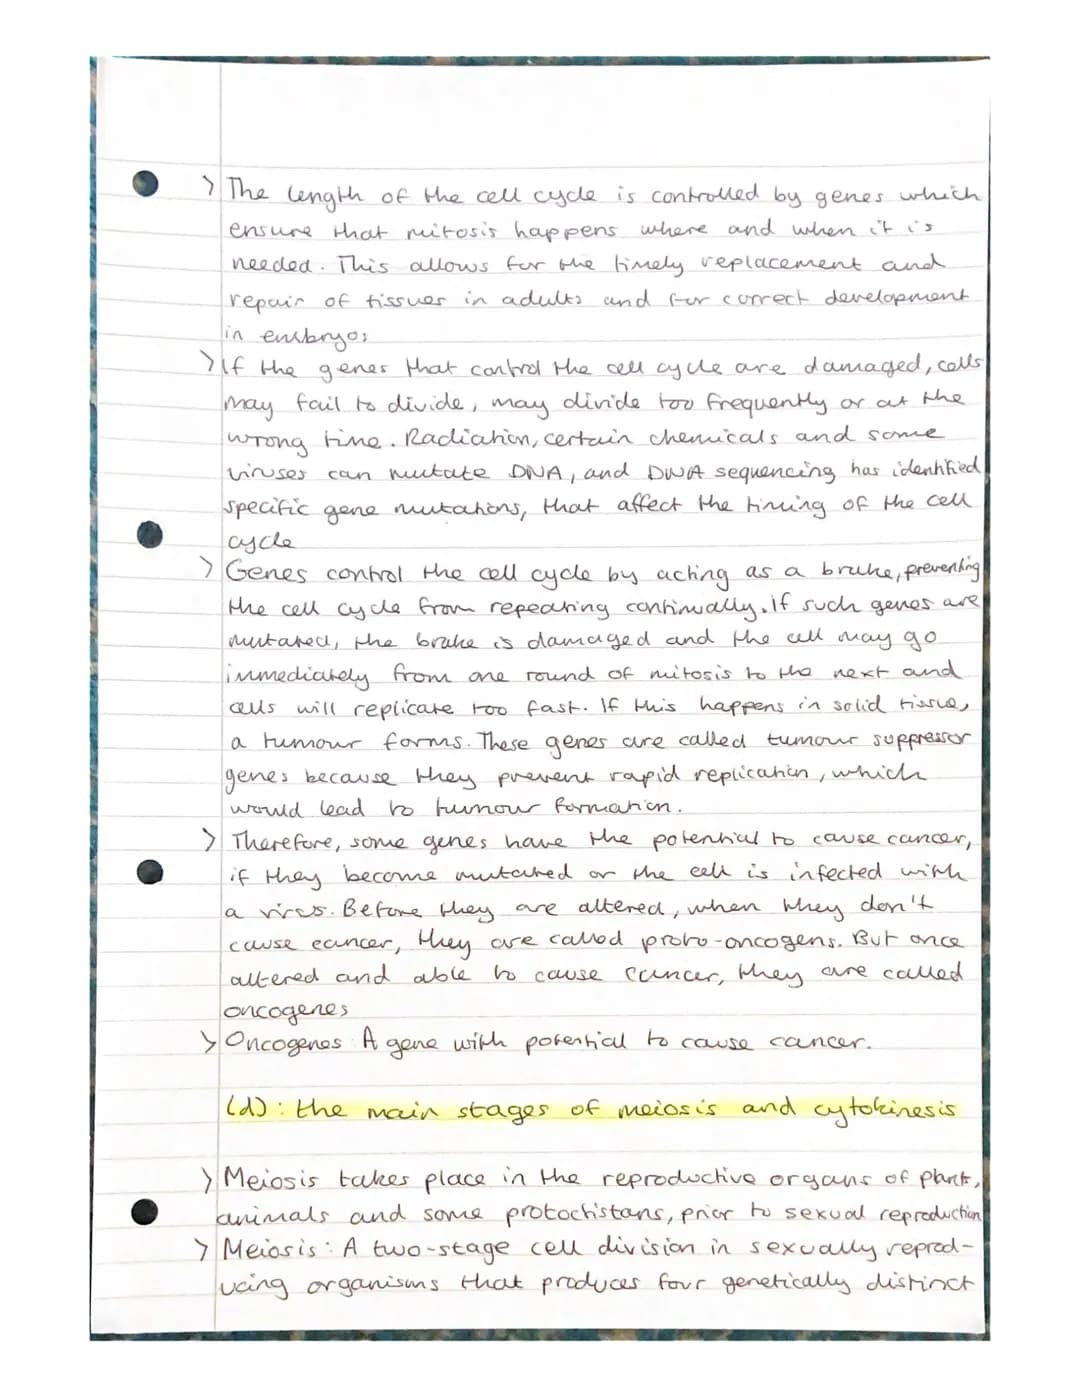 > The length of the cell cycle is controlled by genes which
ensure that mitosis happens where and when it is
needed. This allows for the timely replacement and
repair of tissues in adults and for correct development
in embryos
> If the genes that control the cell cycle are damaged, cells
may fail to divide, may divide too frequently or at the
wrong time. Radiation, certain chemicals and some
viruses can mutate DNA, and DNA sequencing has identified
specific gene mutations, that affect the timing of the cell
cycle
> Genes control the cell cycle by acting as a brake, preventing
the cell cycle from repeating continually. If such genes are
mutated, the brake is damaged and the cell may go
immediately from one round of mitosis to the next and
cells will replicate too fast. If this happens in solid tissue,
a tumour forms. These genes are called tumour suppressor
genes because they prevent rapid replication, which
would lead to tumour formation.
> Therefore, some genes have the potential to cause cancer,
if they become mutated or the cell is infected with
a virus. Before they are altered, when they don't
cause cancer, they are called proto-oncogens. But once
altered and able to cause cancer, they are called
oncogenes
> Oncogenes A gene with potential to cause cancer.
(d): the main stages of meiosis and cytokinesis
> Meiosis takes place in the reproductive organs of plants,
animals and some protoctistans, prior to sexual reproduction
> Meiosis: A two-stage cell division in sexually reprod-
ucing organisms that produces four genetically distinct